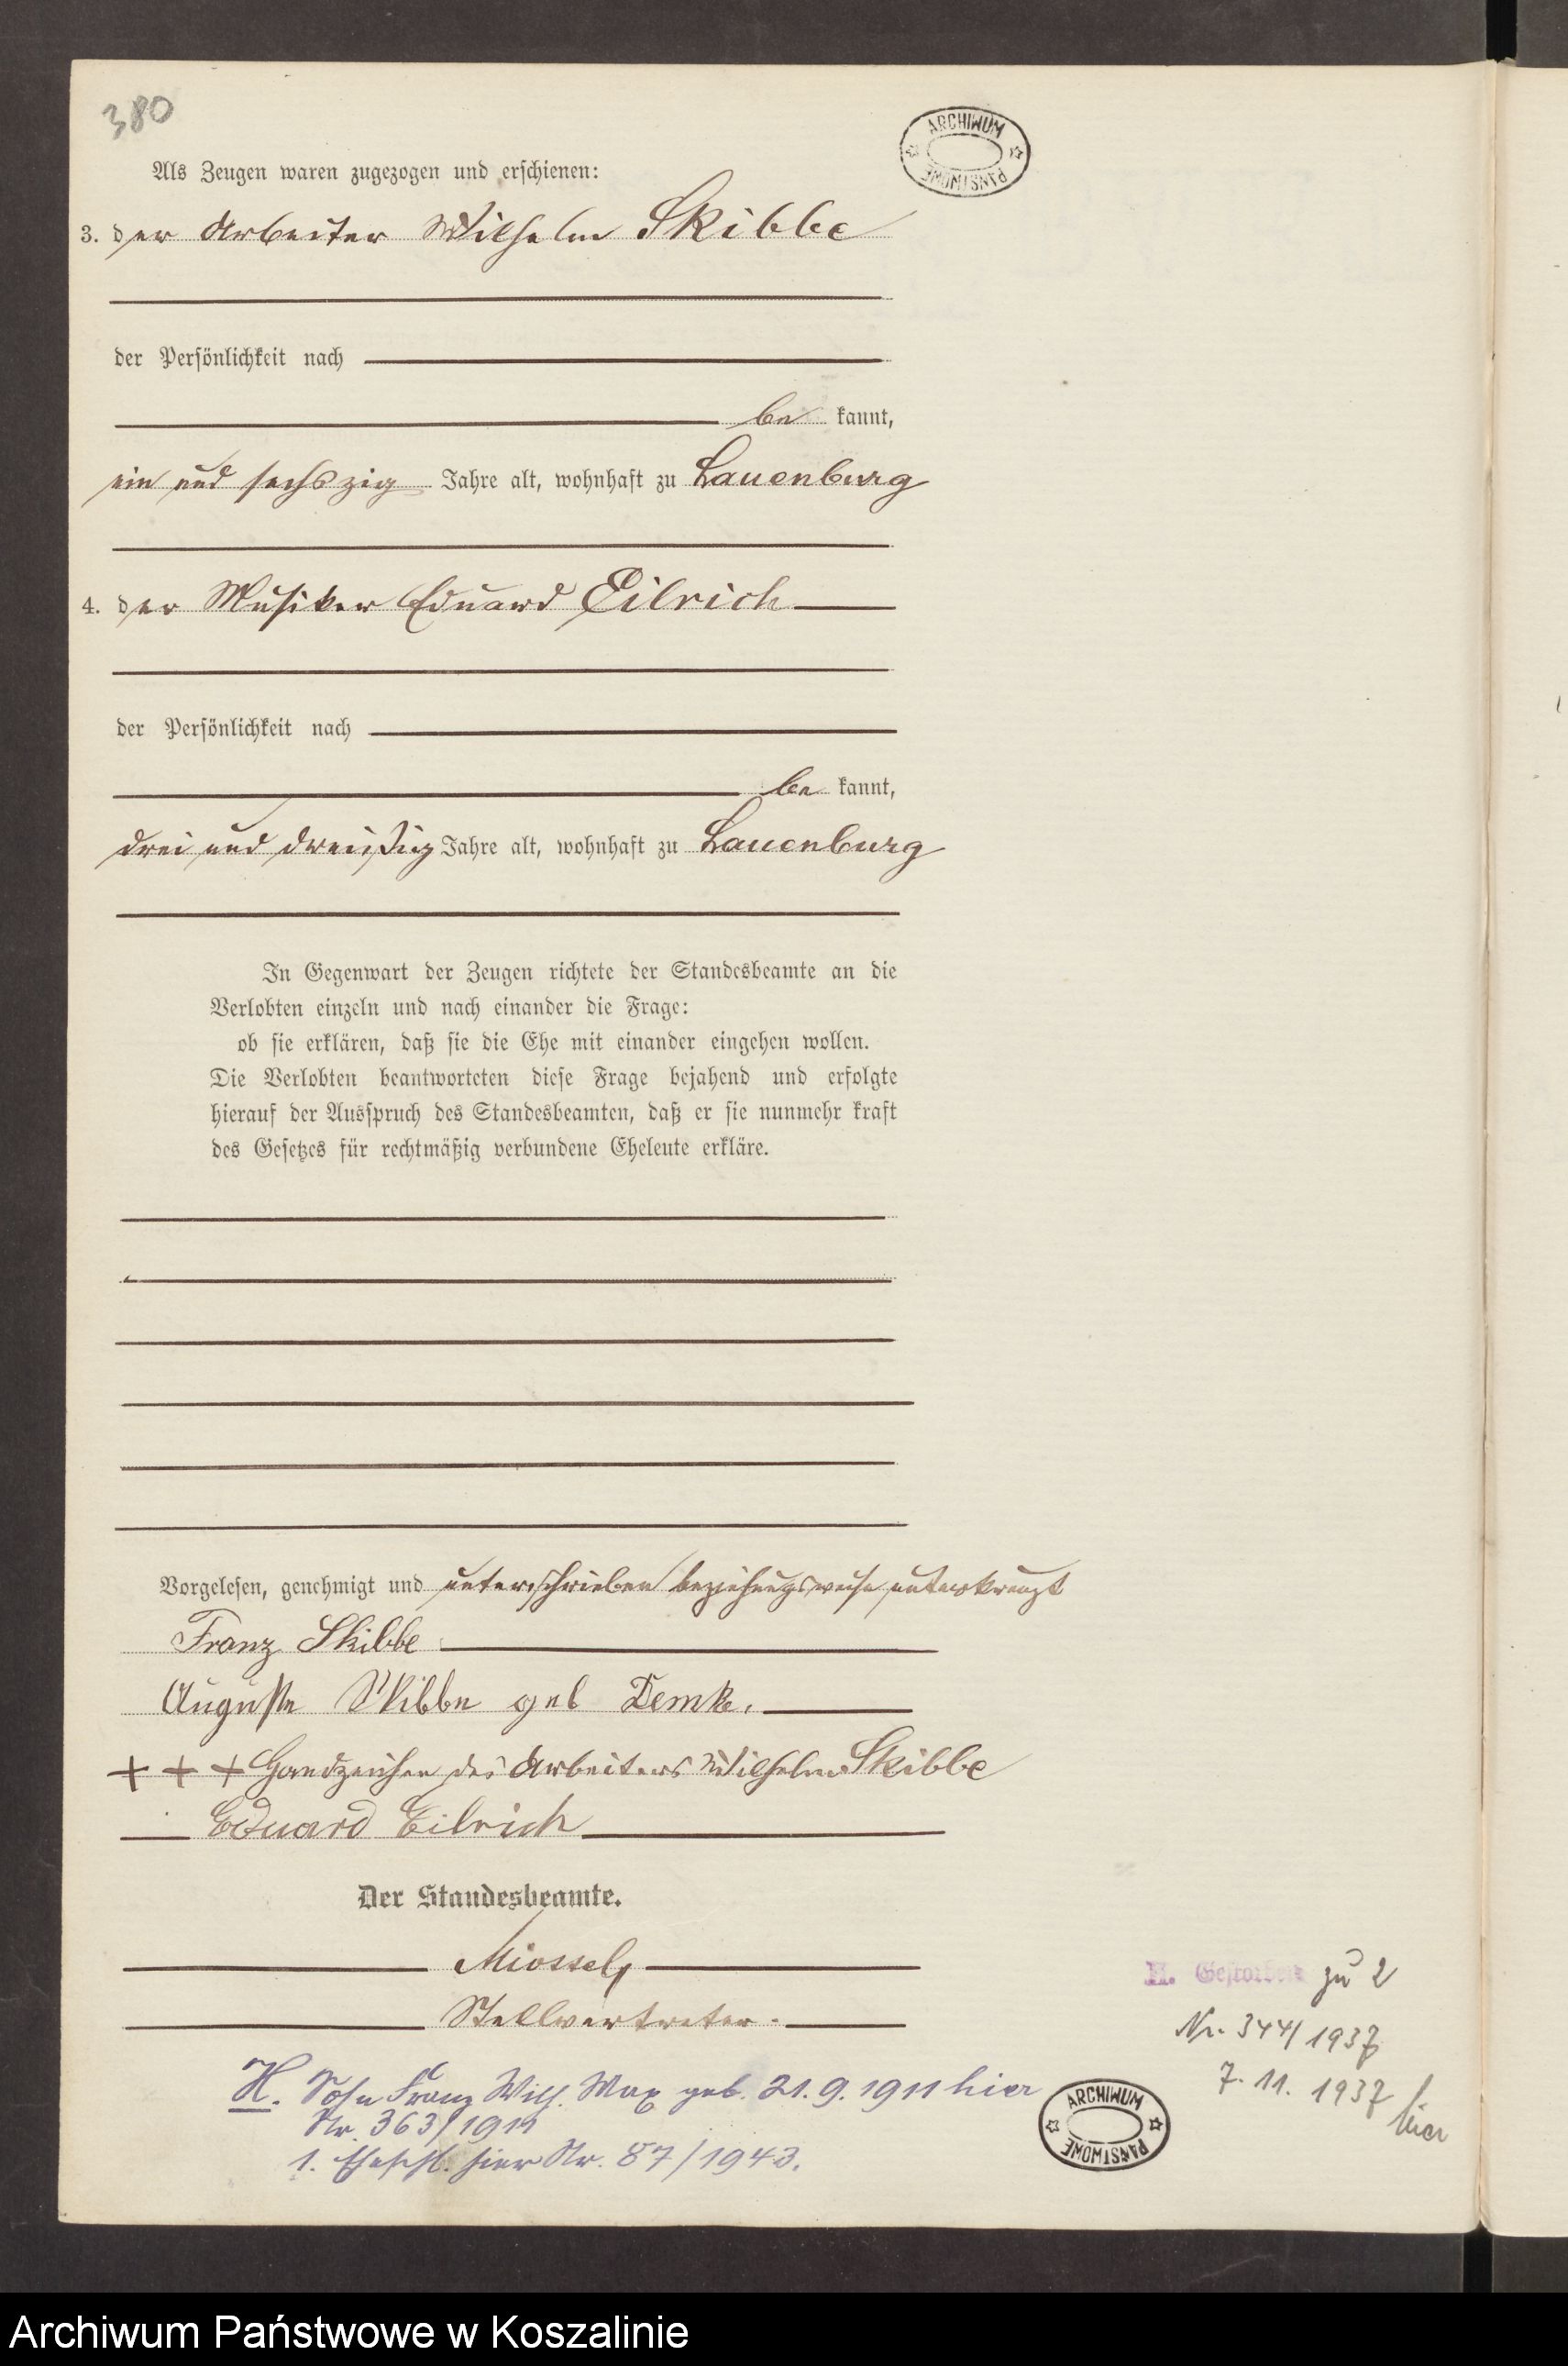 380
ARCHIWUM PAŃSTWOWE
Als Zeugen waren zugezogen und erschienen:
3. der Arbeiter Wilhelm Skibbe
der Persönlichkeit nach
be kannt,
ein und sechszig Jahre alt, wohnhaft zu Lauenburg
4. der Musiker Eduard Eilrich
der Persönlichkeit nach
be kannt,
drei und dreißig Jahre alt, wohnhaft zu Lauenburg
In Gegenwart der Zeugen richtete der Standesbeamte an die
Verlobten einzeln und nach einander die Frage:
ob sie erklären, daß sie die Ehe mit einander eingehen wollen.
Die Verlobten beantworteten diese Frage bejahend und erfolgte
hierauf der Ausspruch des Standesbeamten, daß er sie nunmehr kraft
des Gesetzes für rechtmäßig verbundene Eheleute erkläre.
Vorgelesen, genehmigt und unterschrieben beziehungsweise unterkreuzt
Franz Skibbe
Auguste Skibbe geb Demke.
+ + + Handzeichen des Arbeiters Wilhelm Skibbe
Eduard Eilrich
Der Standesbeamte.
Stellvertreter.
H. Sohn Franz Wilh. Max geb. 21.9.1911 hier
Nr. 363/1911
1. Eheschl. hier Nr. 87/1943.
H. Gestorben zu 2
Nr. 344/1937
7. 11. 1937 hier
ARCHIWUM PAŃSTWOWE
Archiwum Państwowe w Koszalinie